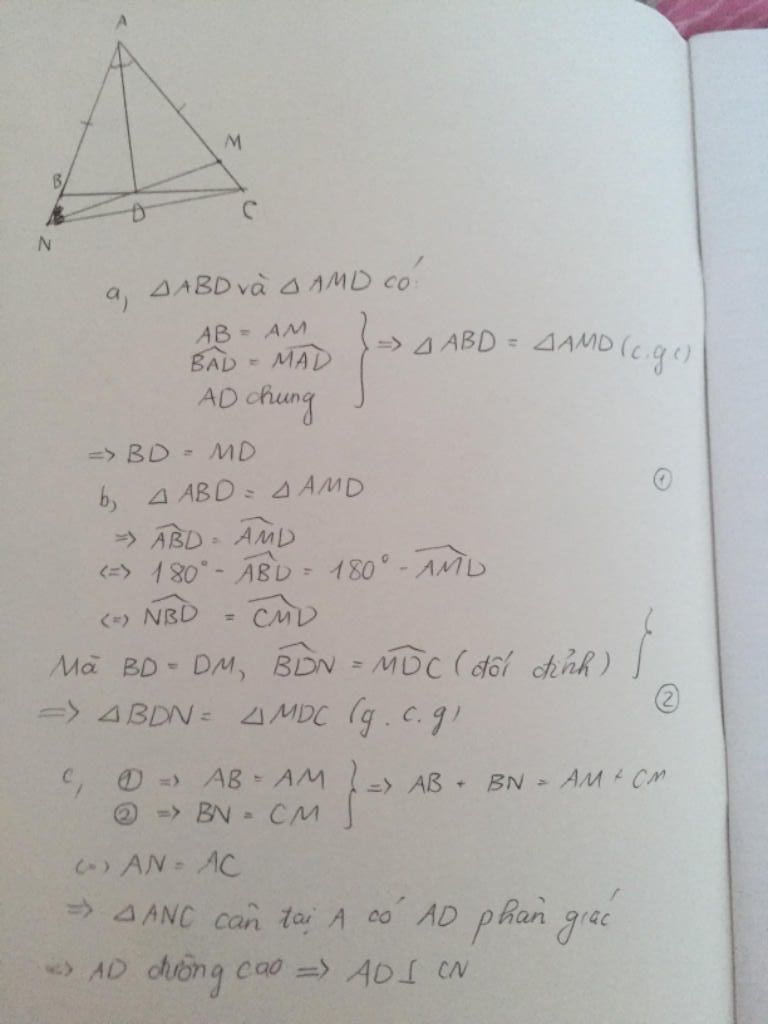 A
M
B
D
C
N
a, △ABD và △AMD có:
AB = AM
B̂AD = M̂AD
AD chung
} => △ABD = △AMD (c.g c)
=> BD = MD
b, △ABD = △AMD ①
=> ÂBD = ÂMD
<=> 180° - ÂBD = 180° - ÂMD
<=> N̂BD = ĈMD
Mà BD = DM, B̂DN = M̂DC (đối đỉnh) }
=> △BDN = △MDC (g.c.g) ②
c, ① => AB = AM
② => BN = CM
} => AB + BN = AM + CM
<=> AN = AC
=> △ANC cân tại A có AD phân giác
=> AD đường cao => AD ⊥ CN